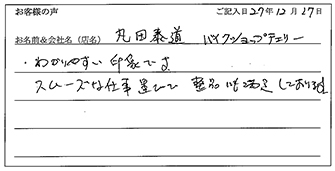 お客様の声 ご記入日27年12月17日
お名前&会社名(店名) 丸田泰道 バイクショップテェリー
・わかりやすい印象です
スムーズな仕事運びで 整品にも満足しております。